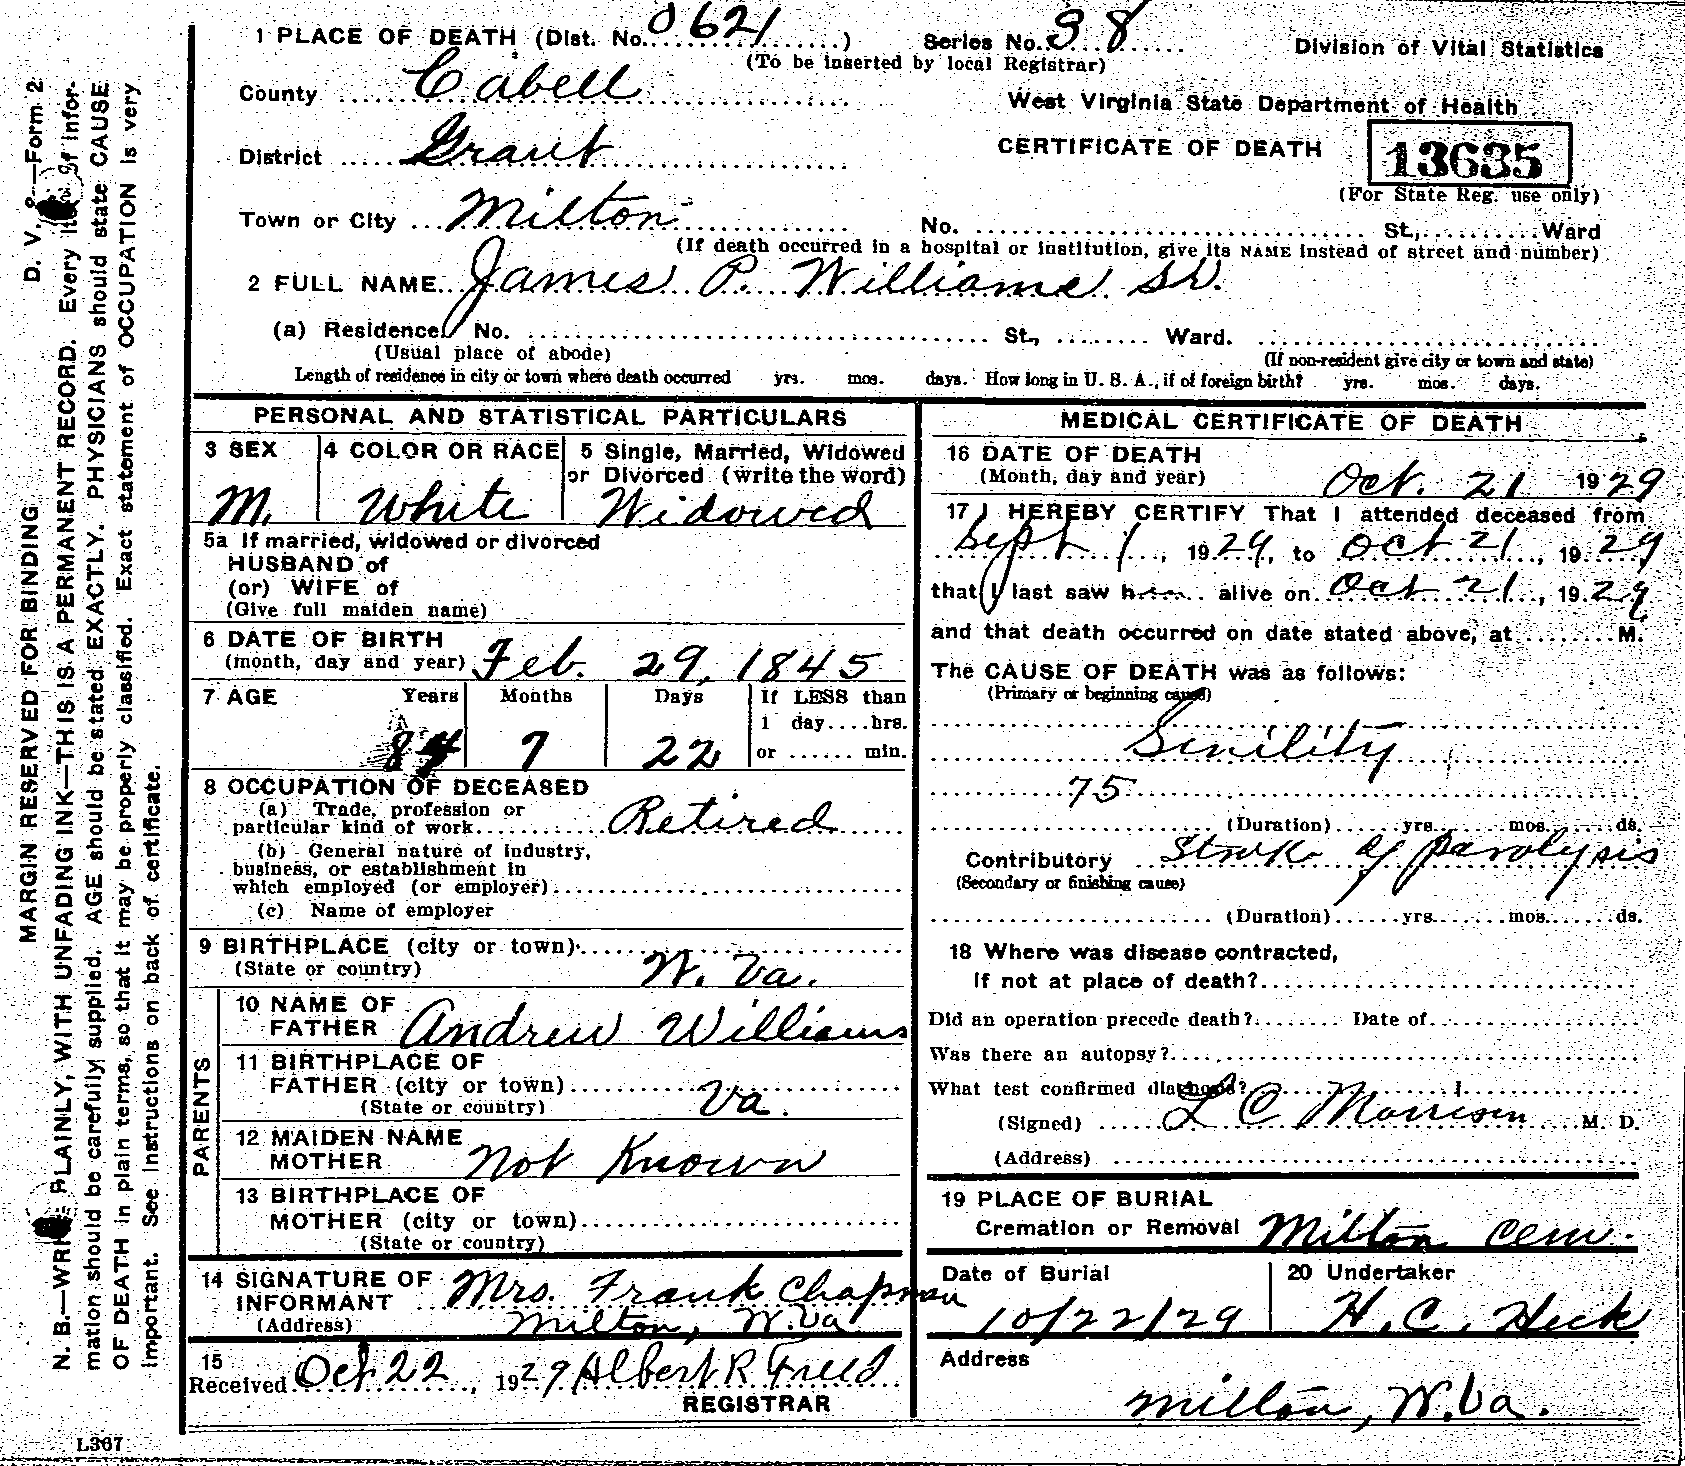 MARGIN RESERVED FOR BINDING D. V. —Form 2
N. B.—WRITE PLAINLY, WITH UNFADING INK—THIS IS A PERMANENT RECORD. Every item of infor-
mation should be carefully supplied. AGE should be stated EXACTLY. PHYSICIANS should state CAUSE
OF DEATH in plain terms, so that it may be properly classified. Exact statement of OCCUPATION is very
important. See instructions on back of certificate.
L367
1 PLACE OF DEATH (Dist. No. 0621) Series No. 38 Division of Vital Statistics
(To be inserted by local Registrar)
County Cabell West Virginia State Department of Health
District Grant CERTIFICATE OF DEATH 13635
(For State Reg. use only)
Town or City Milton No. St., Ward
(If death occurred in a hospital or institution, give its NAME instead of street and number)
2 FULL NAME James P. Williams Sr.
(a) Residence. No. St., Ward.
(Usual place of abode) (If non-resident give city or town and state)
Length of residence in city or town where death occurred yrs. mos. days. How long in U. S. A., if of foreign birth? yrs. mos. days.
PERSONAL AND STATISTICAL PARTICULARS
3 SEX 4 COLOR OR RACE 5 Single, Married, Widowed
or Divorced (write the word)
M. White Widowed
5a If married, widowed or divorced
HUSBAND of
(or) WIFE of
(Give full maiden name)
6 DATE OF BIRTH
(month, day and year) Feb. 29, 1845
7 AGE Years Months Days If LESS than
1 day....hrs.
84 7 22 or ...... min.
8 OCCUPATION OF DECEASED
(a) Trade, profession or
particular kind of work Retired
(b) General nature of industry,
business, or establishment in
which employed (or employer)
(c) Name of employer
9 BIRTHPLACE (city or town)
(State or country) W. Va.
PARENTS
10 NAME OF
FATHER Andrew Williams
11 BIRTHPLACE OF
FATHER (city or town)
(State or country) Va.
12 MAIDEN NAME
MOTHER Not Known
13 BIRTHPLACE OF
MOTHER (city or town)
(State or country)
14 SIGNATURE OF
INFORMANT Mrs. Frank Chapman
(Address) Milton, W.Va
15
Received Oct 22, 1929 Albert R Freed
REGISTRAR
MEDICAL CERTIFICATE OF DEATH
16 DATE OF DEATH
(Month, day and year) Oct. 21 1929
17 I HEREBY CERTIFY That I attended deceased from
Sept 1, 1929, to Oct 21, 1929
that I last saw him alive on Oct 21, 1929
and that death occurred on date stated above, at ........ M.
The CAUSE OF DEATH was as follows:
(Primary or beginning cause)
Senility
75
(Duration) yrs. mos. ds.
Contributory Stroke of paralysis
(Secondary or finishing cause)
(Duration) yrs. mos. ds.
18 Where was disease contracted,
If not at place of death?
Did an operation precede death? Date of
Was there an autopsy?
What test confirmed diagnosis?
(Signed) L C Morrison M. D.
(Address)
19 PLACE OF BURIAL
Cremation or Removal Milton Cem.
Date of Burial 20 Undertaker
10/22/29 H. C. Heck
Address
Milton, W.Va.